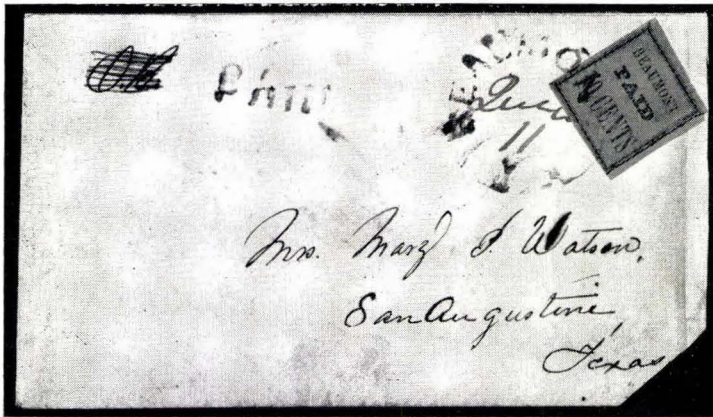 PAID
BEAUMO
June
11
BEAUMONT
PAID
10 CENTS
Mrs. Mary S. Watson,
San Augustine,
Texas